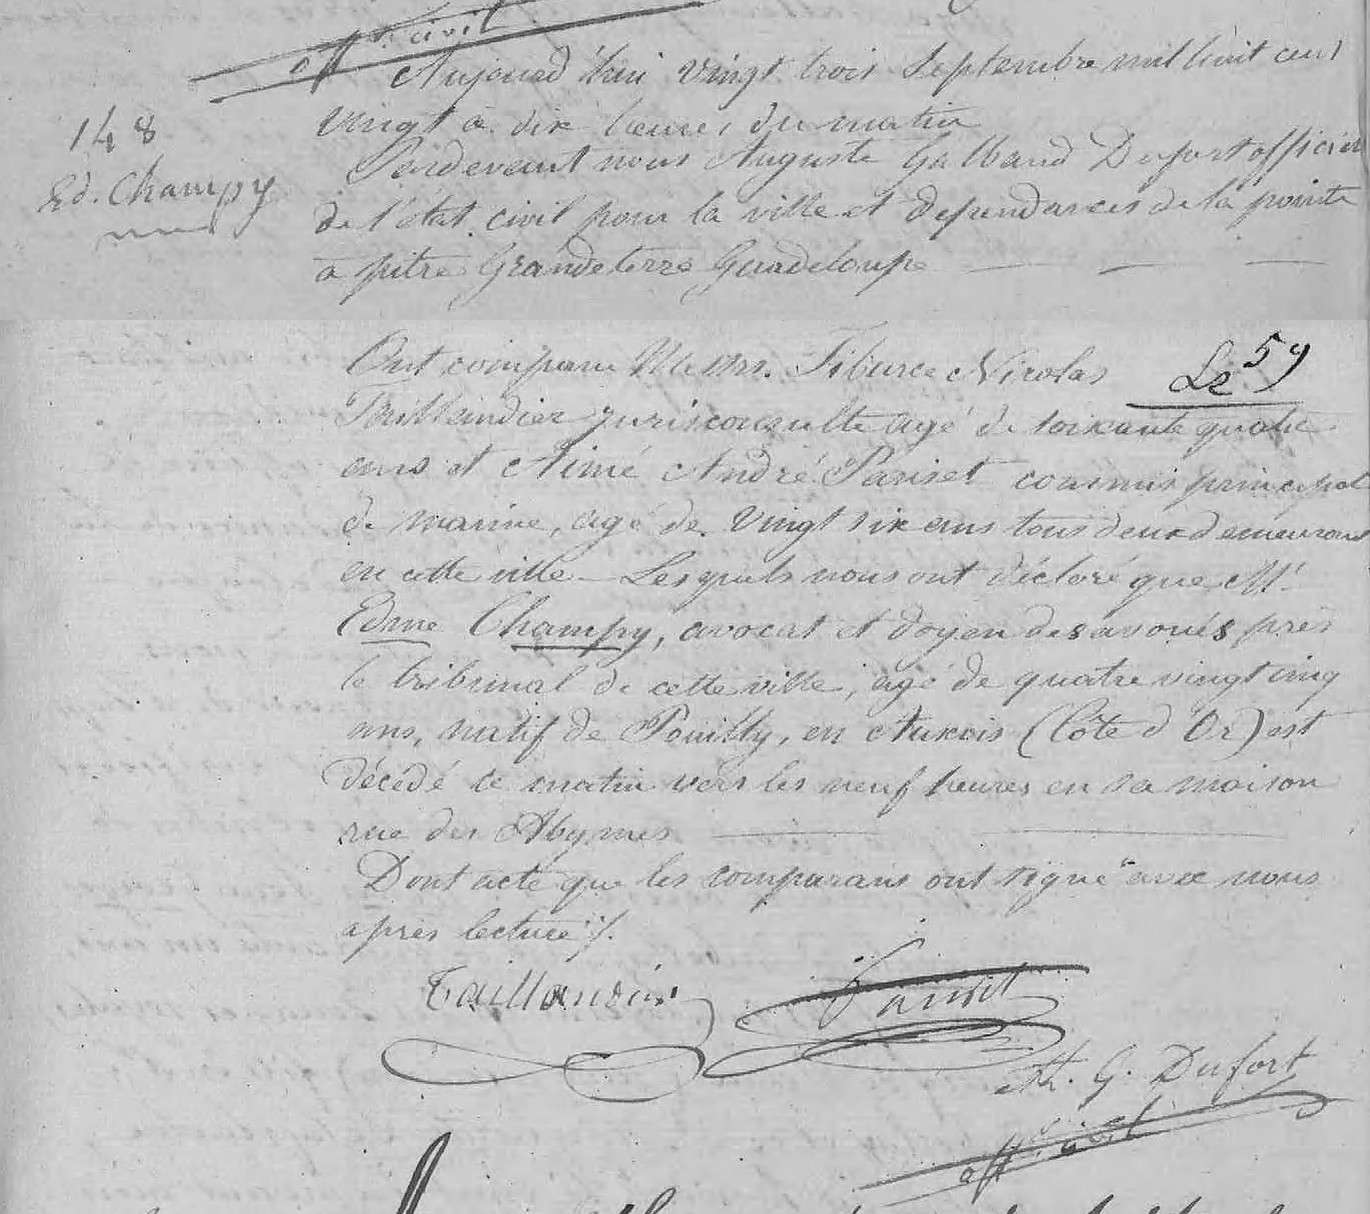 offr. civil
Aujourd'hui vingt trois Septembre mil huit cent
vingt à dix heures du matin
148
Ed. Champy
Pardevant nous Auguste Galbaud Dufort officier
de l'état civil pour la ville et dépendances de la pointe
a pitre Grandeterre Guadeloupe
Ont comparu Messrs. Tiburce Nicolas
Le 59
Taillandier jurisconsulte agé de soixante quatre
ans et Aimé André Pariset commis principal
de marine, agé de vingt six ans tous deux demeurant
en cette ville. Lesquels nous ont déclaré que Mr.
Edme Champy, avocat et doyen des avoués près
le tribunal de cette ville, agé de quatre vingt cinq
ans, natif de Pouilly, en Auxois (Côte d'Or) est
décédé ce matin vers les neuf heures en sa maison
rue des Abymes
Dont acte que les comparans ont signé avec nous
après lecture ./.
Taillandier
Pariset
A. G. Dufort
offr. civil